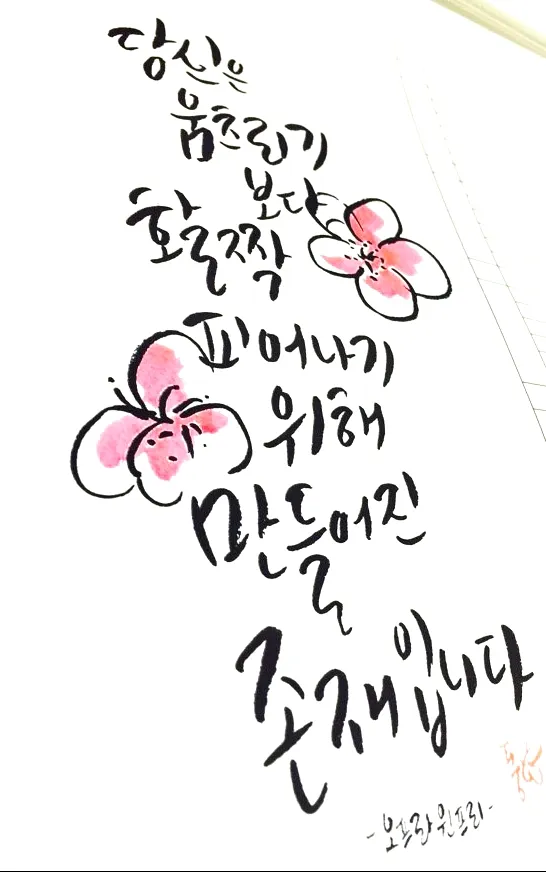 당신은
움츠리기
보다
활짝
피어나기
위해
만들어진
존재입니다
-오프라 윈프리-